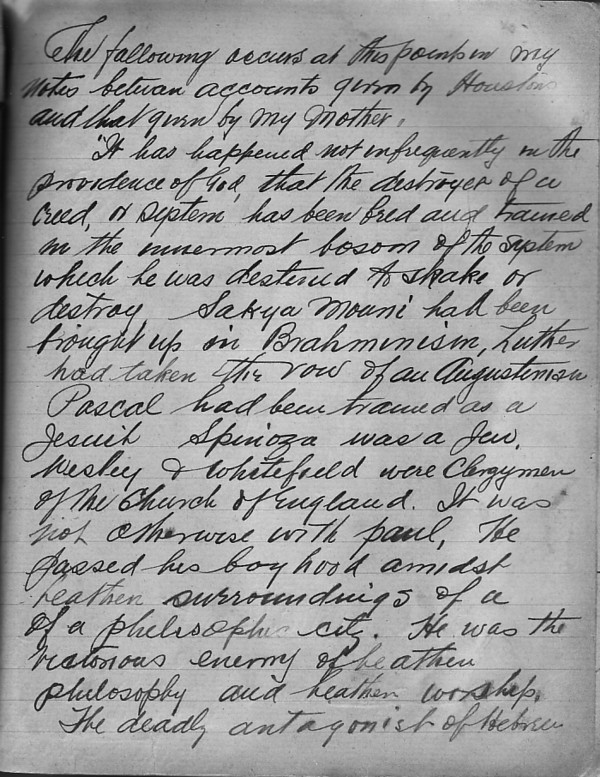 The following occurs at this point in my
notes betwan accounts given by Houston
and that given by my Mother.
"It has happened not infrequently in the
providence of God, that the destroyer of a
creed, or septem has been bred and trained
in the innermost bosom of the system
which he was destened to shake or
destroy Sakya Mouni had been
brought up in Brahminism, Luther
had taken the vow of an Augustinian
Pascal had been trained as a
Jesuit Spinoza was a Jew,
Wesley & Whitefield were Clergymen
of the Church of England. It was
not otherwise with paul, He
passed his boy hood amidst
heathen surroundings of a
of a philosophic city. He was the
victorious enemy of heathen
philosophy and heathen worship.
The deadly antagonist of Hebrew